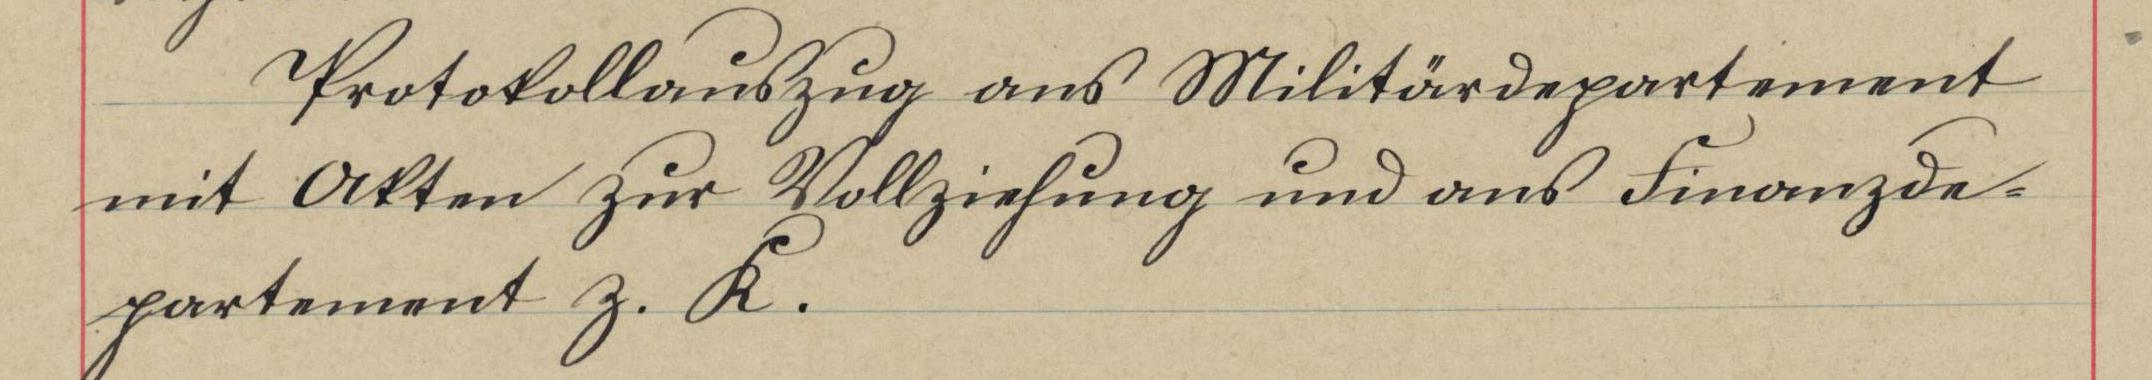 Protokollauszug ans Militärdepartement
mit Akten zur Vollziehung und ans Finanzde-
partement z. K.